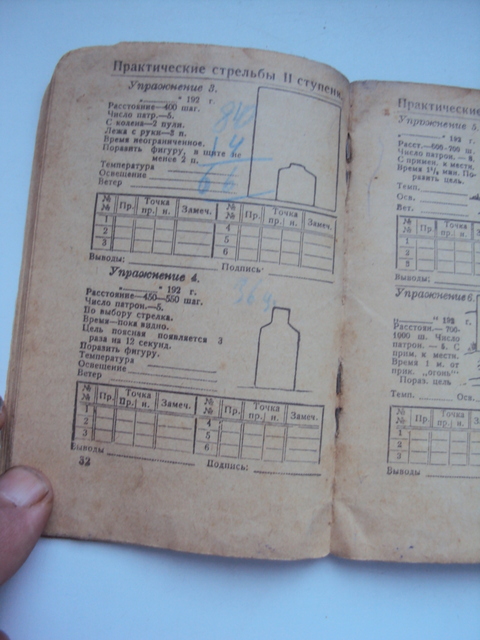 Практические стрельбы II ступени
Упражнение 3.
„ " 192 г.
Расстояние—400 шаг.
Число патр.—5.
С колена—2 пули.
Лежа с руки—3 п.
Время неограниченное.
Поразить фигуру, в щите не
менее 2 п.
Температура
Освещение
Ветер
840
14
66
№№ Пр. Точка пр. н. Замеч. №№ Пр. Точка пр. н. Замеч.
1 4
2 5
3 6
Выводы: Подпись:
Упражнение 4.
„ " 192 г.
Расстояние—450—550 шаг.
Число патрон.—5.
По выбору стрелка.
Время—пока видно.
Цель поясная появляется 3
раза на 12 секунд.
Поразить фигуру.
Температура
Освещение
Ветер
№№ Пр. Точка пр. н. Замеч. №№ Пр. Точка пр. н. Замеч.
1 4
2 5
3 6
Выводы Подпись:
32
Практические
Упражнение 5.
Расст.—600—700 ш.
Число патрон. — 5.
С примен. к местн.
разить цель.
Темп.
Осв.
Вет.
№№ Пр. Точка пр. н.
1
2
3
Выводы:
Упражнение 6.
Расстоян.— 700-
1000 ш. Число
патрон. — 5. С
прим. к. мести.
Время 1 м. от
прик. „огонь"
Пораз. цель
Темп. Осв.
Ветер
№№ Пр. Точка пр. н.
1
2
3
Выводы